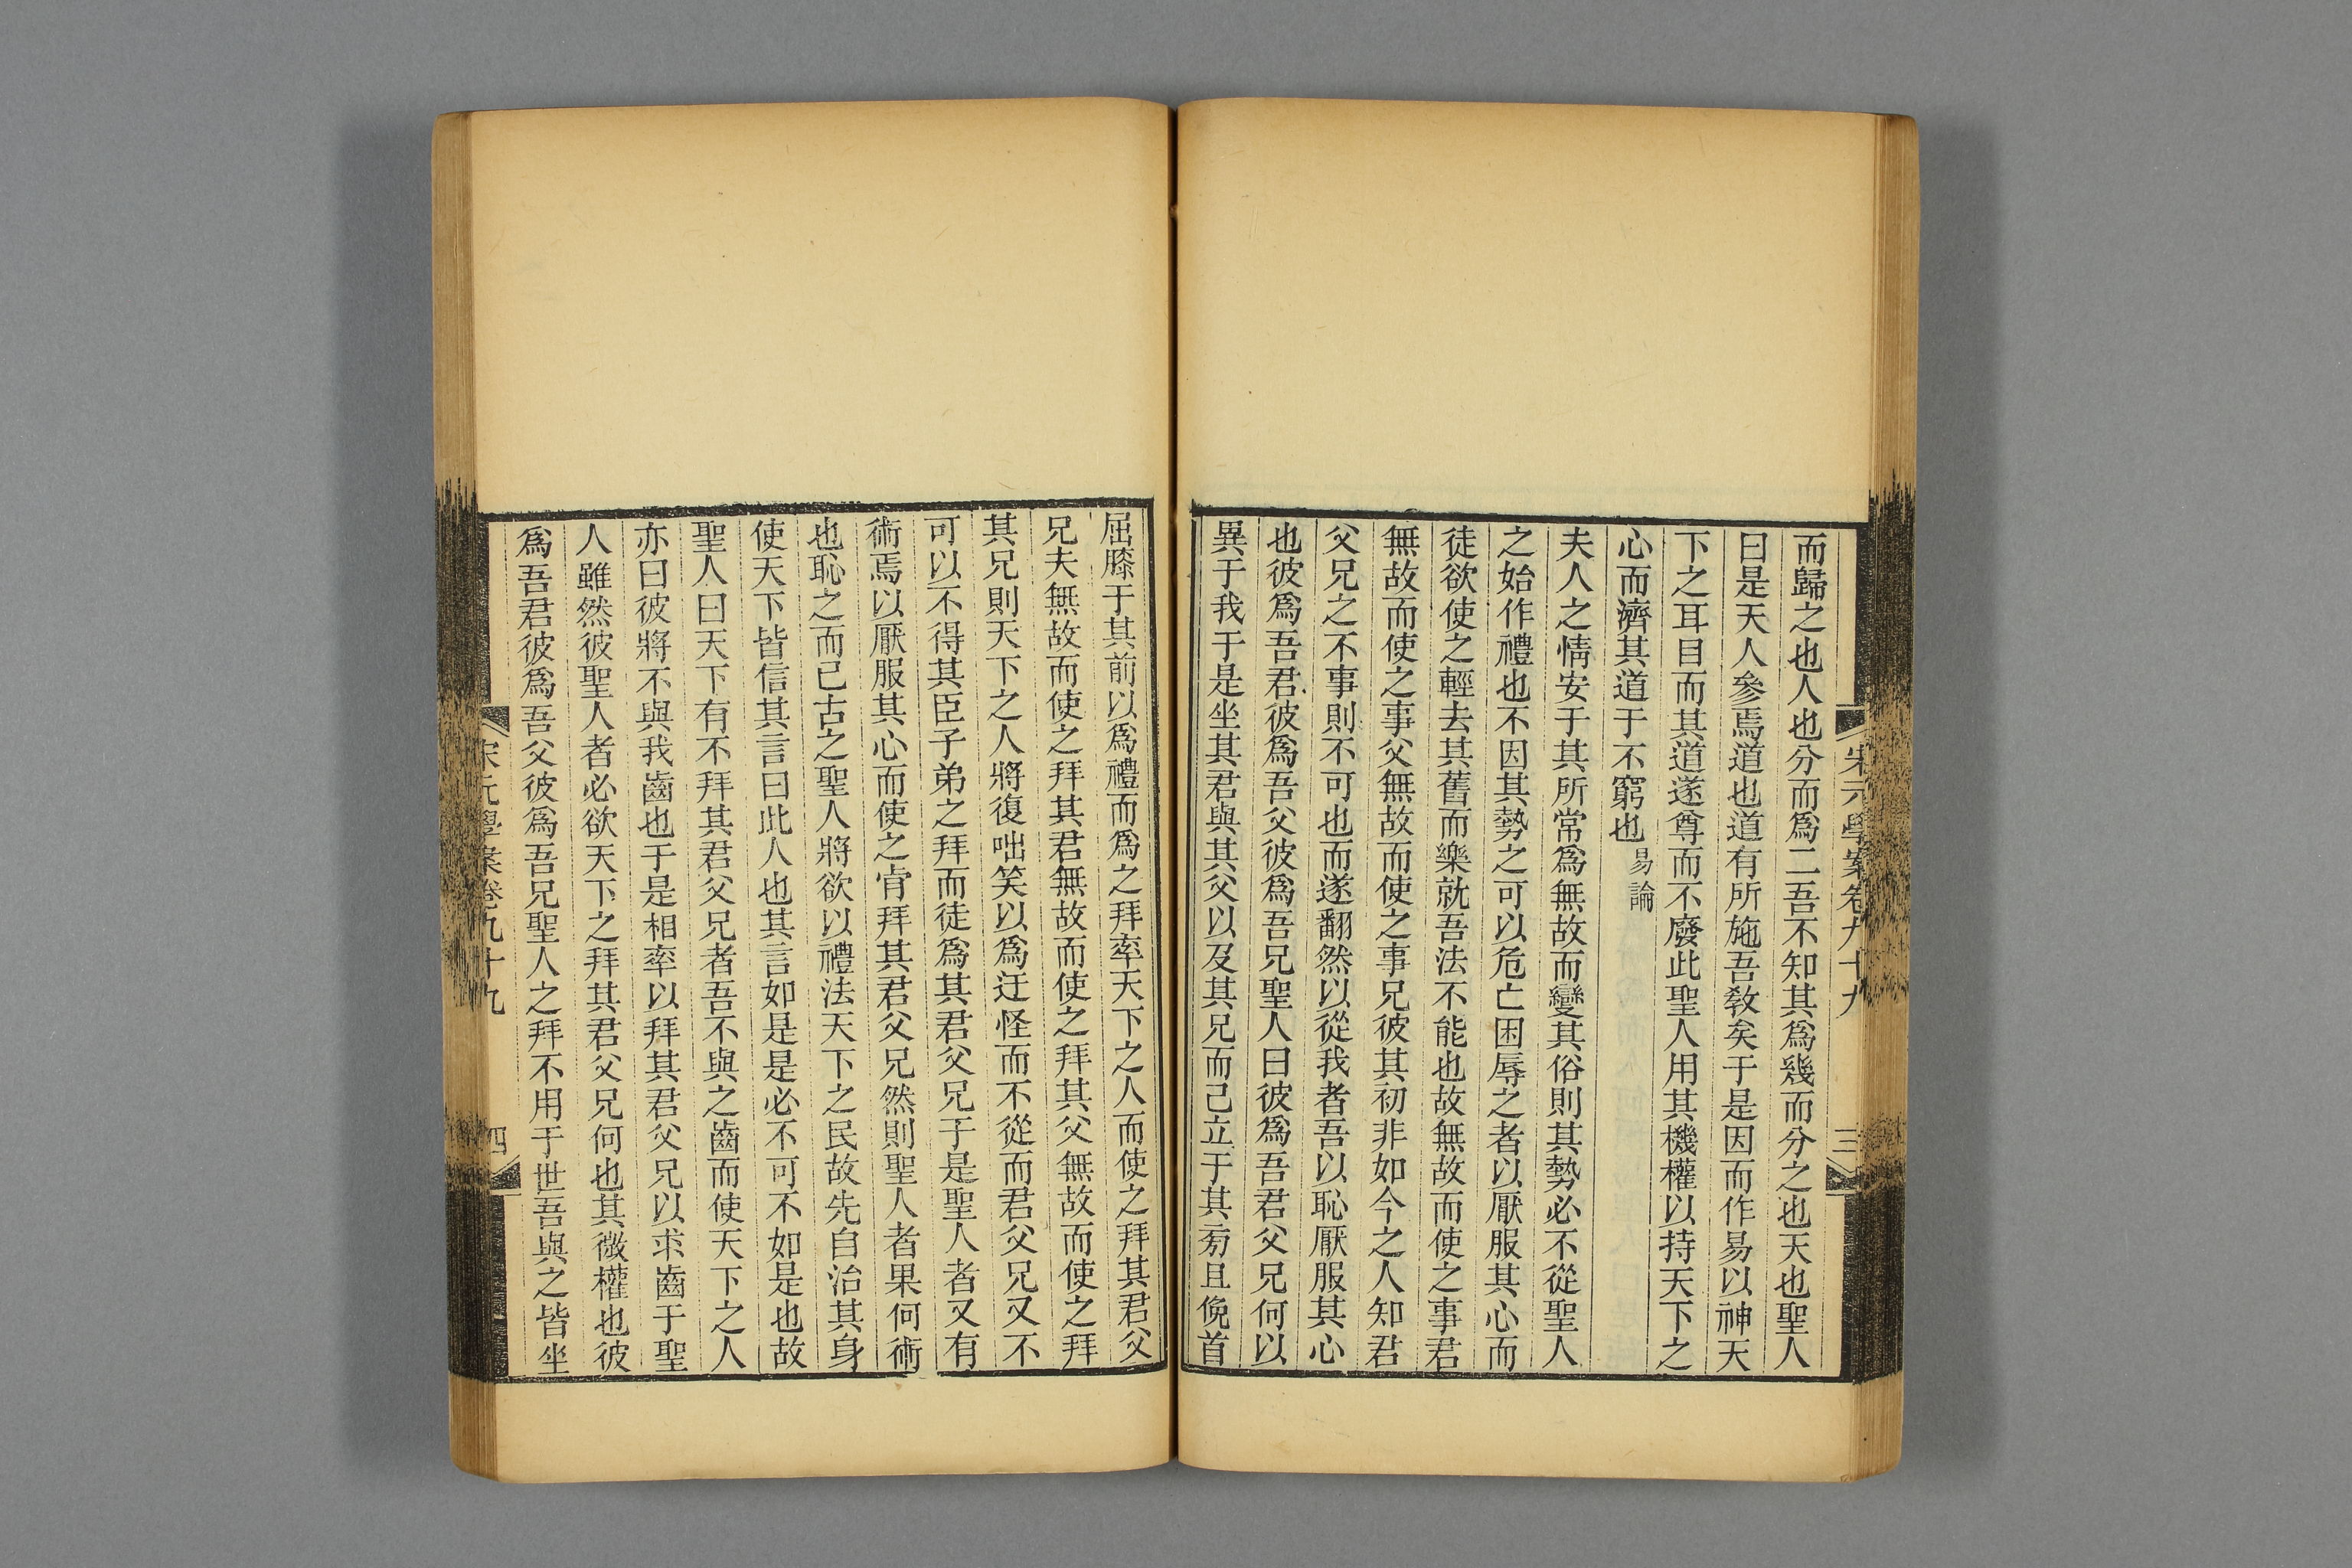 宋元學案卷九十九
三
而歸之也人也分而爲二吾不知其爲幾而分之也天也聖人
曰是天人參焉道也道有所施吾敎矣于是因而作易以神天
下之耳目而其道遂尊而不廢此聖人用其機權以持天下之
心而濟其道于不窮也易論
夫人之情安于其所常爲無故而變其俗則其勢必不從聖人
之始作禮也不因其勢之可以危亡困辱之者以厭服其心而
徒欲使之輕去其舊而樂就吾法不能也故無故而使之事君
無故而使之事父無故而使之事兄彼其初非如今之人知君
父兄之不事則不可也而遂翻然以從我者吾以恥厭服其心
也彼爲吾君彼爲吾父彼爲吾兄聖人曰彼爲吾君父兄何以
異于我于是坐其君與其父以及其兄而己立于其旁且俛首
屈膝于其前以爲禮而爲之拜率天下之人而使之拜其君父
兄夫無故而使之拜其君無故而使之拜其父無故而使之拜
其兄則天下之人將復咄笑以爲迂怪而不從而君父兄又不
可以不得其臣子弟之拜而徒爲其君父兄于是聖人者又有
術焉以厭服其心而使之肯拜其君父兄然則聖人者果何術
也恥之而已古之聖人將欲以禮法天下之民故先自治其身
使天下皆信其言曰此人也其言如是是必不可不如是也故
聖人曰天下有不拜其君父兄者吾不與之齒而使天下之人
亦曰彼將不與我齒也于是相率以拜其君父兄以求齒于聖
人雖然彼聖人者必欲天下之拜其君父兄何也其微權也彼
爲吾君彼爲吾父彼爲吾兄聖人之拜不用于世吾與之皆坐
宋元學案卷九十九
四